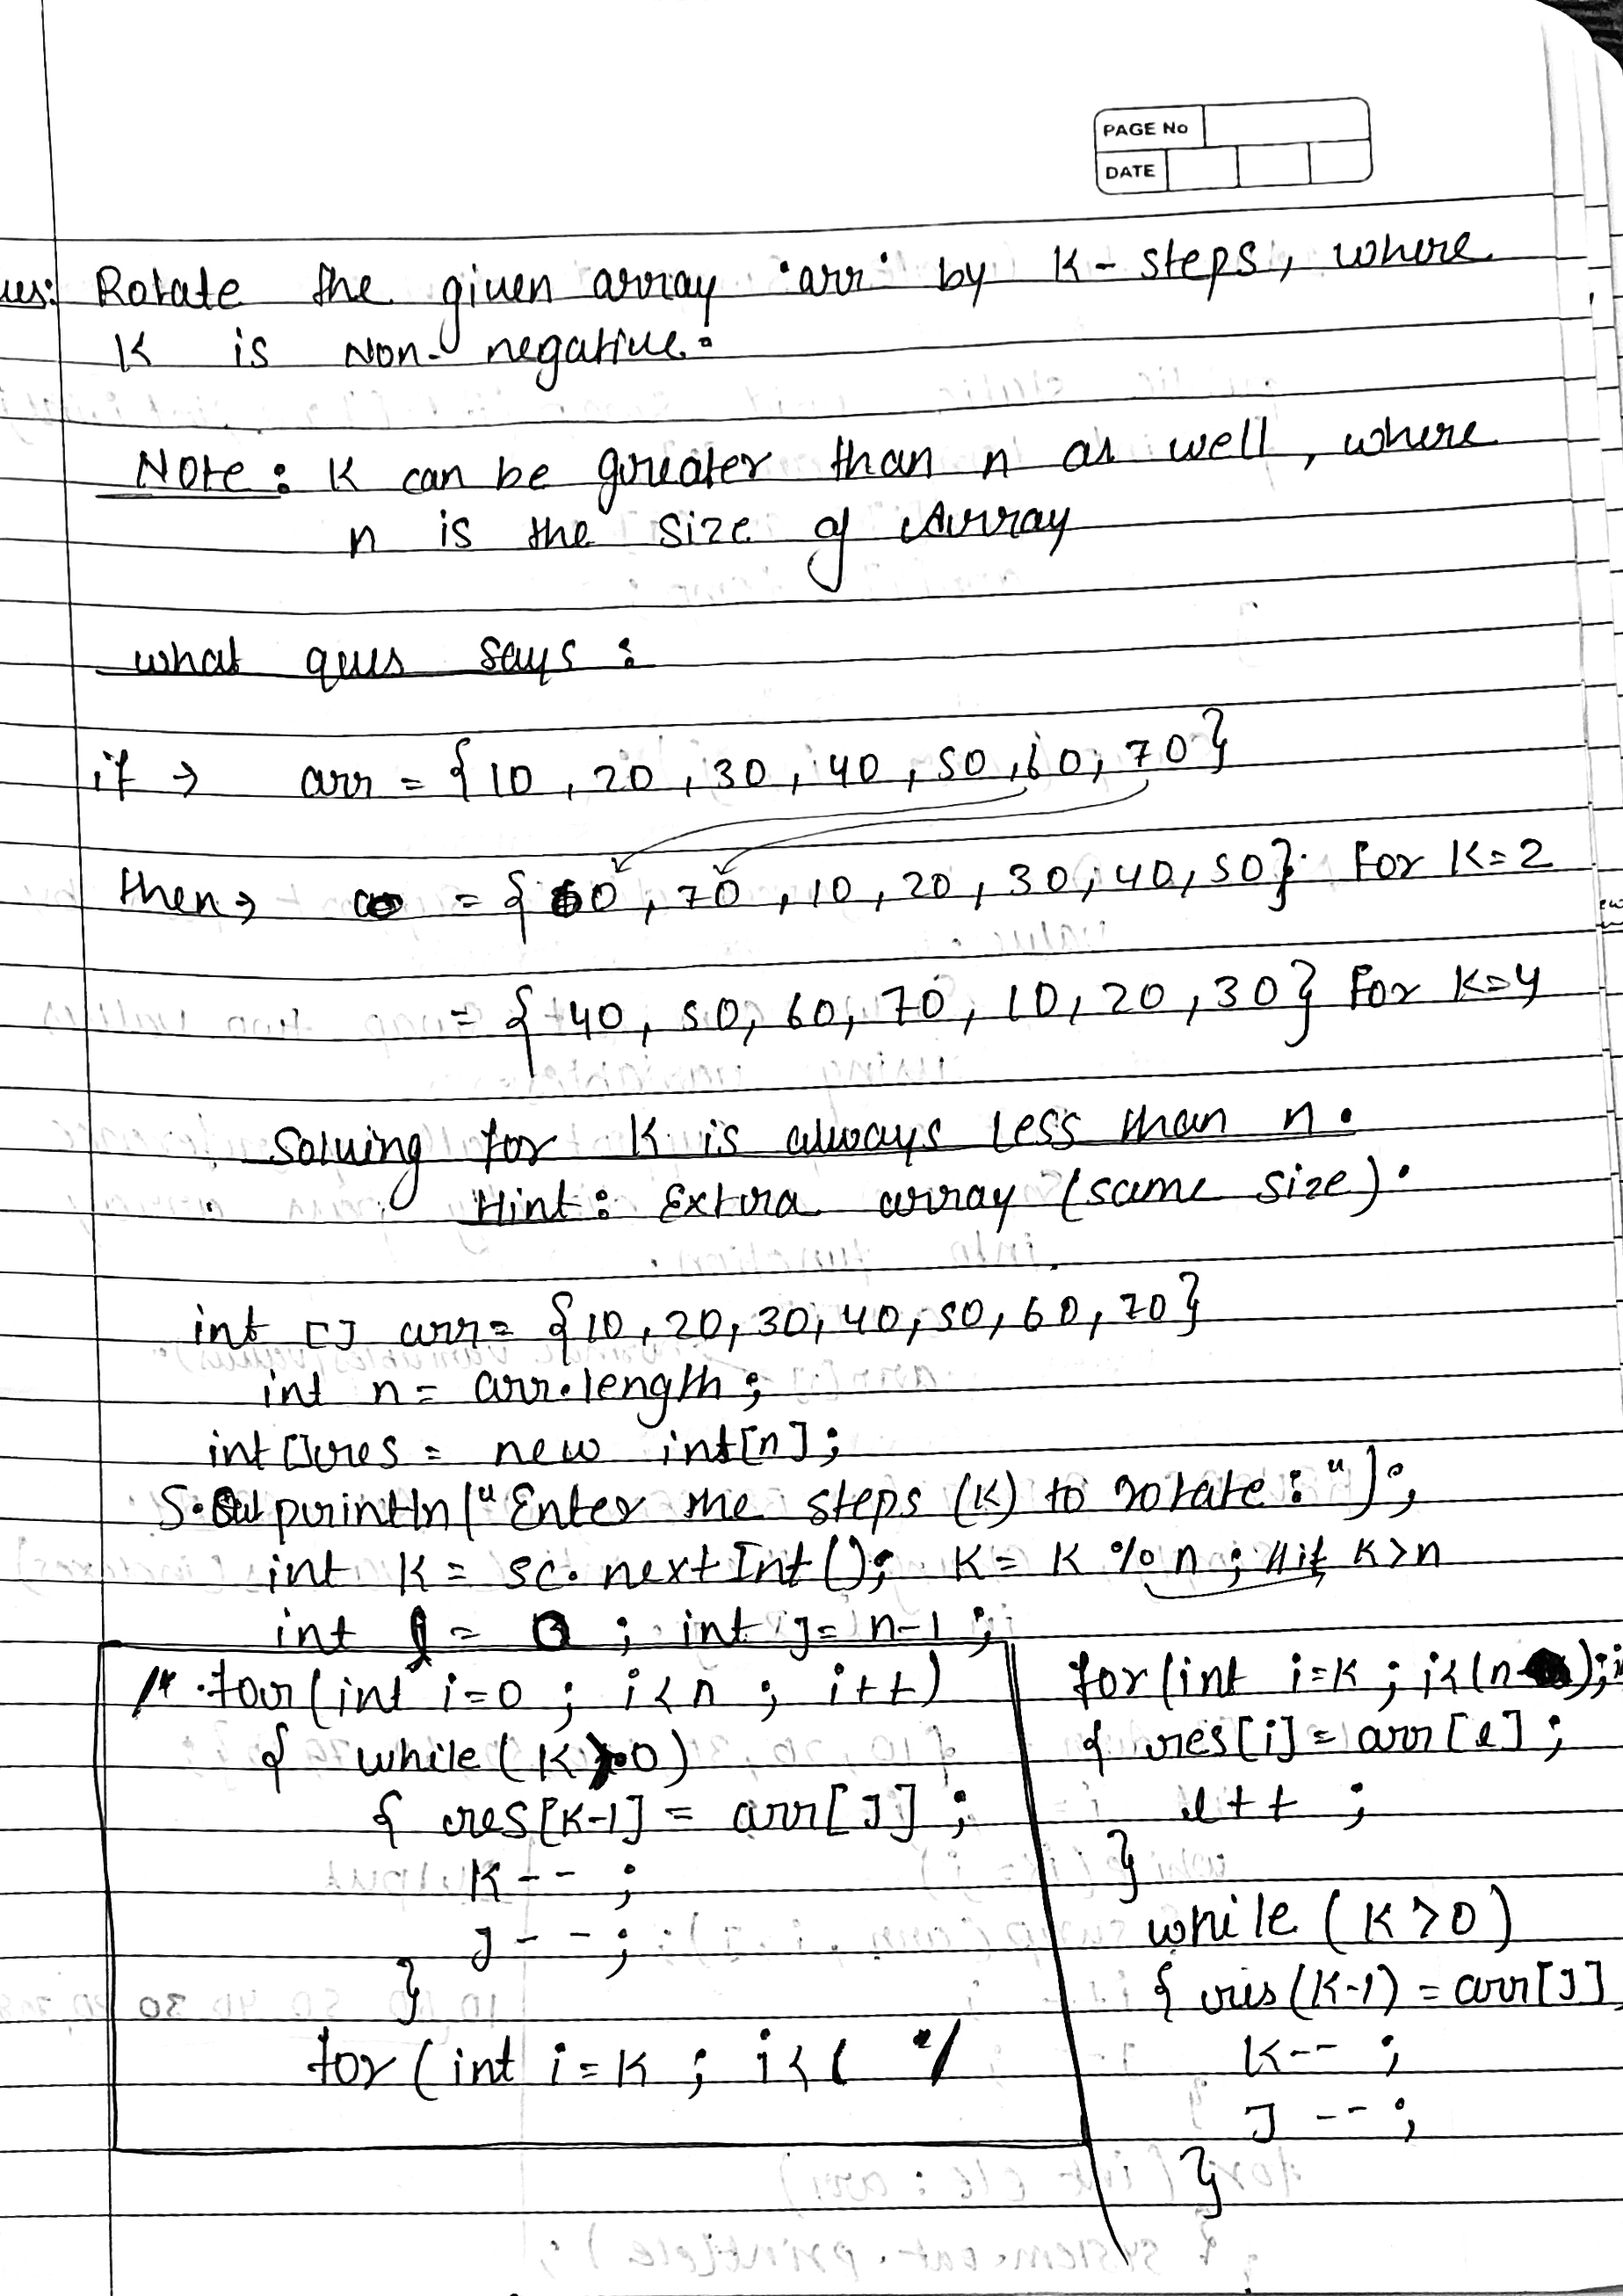 PAGE No
DATE
ues: Rotate the given array 'arr' by K-steps, where
K is Non-negative.
Note: K can be greater than n as well, where
n is the size of Array
what ques says:
if → arr = {10, 20, 30, 40, 50, 60, 70}
then → = {60, 70, 10, 20, 30, 40, 50} For K=2
= {40, 50, 60, 70, 10, 20, 30} For K=4
Solving for K is always less than n.
Hint: Extra array (same size).
int [] arr = {10, 20, 30, 40, 50, 60, 70}
int n = arr.length;
int[] res = new int[n];
S.out println("Enter the steps (K) to rotate:");
int K = sc.nextInt(); K = K % n; // if K>n
int l = 0; int J = n-1;
/* for(int i=0; i<n; i++)
{ while(K>0)
{ res[K-1] = arr[J];
K--;
J--;
}
for(int i=K; i<( */
for(int i=K; i<(n);i
{ res[i] = arr[l];
l++;
}
while(K>0)
{ res(K-1) = arr[J]
K--;
J--;
}